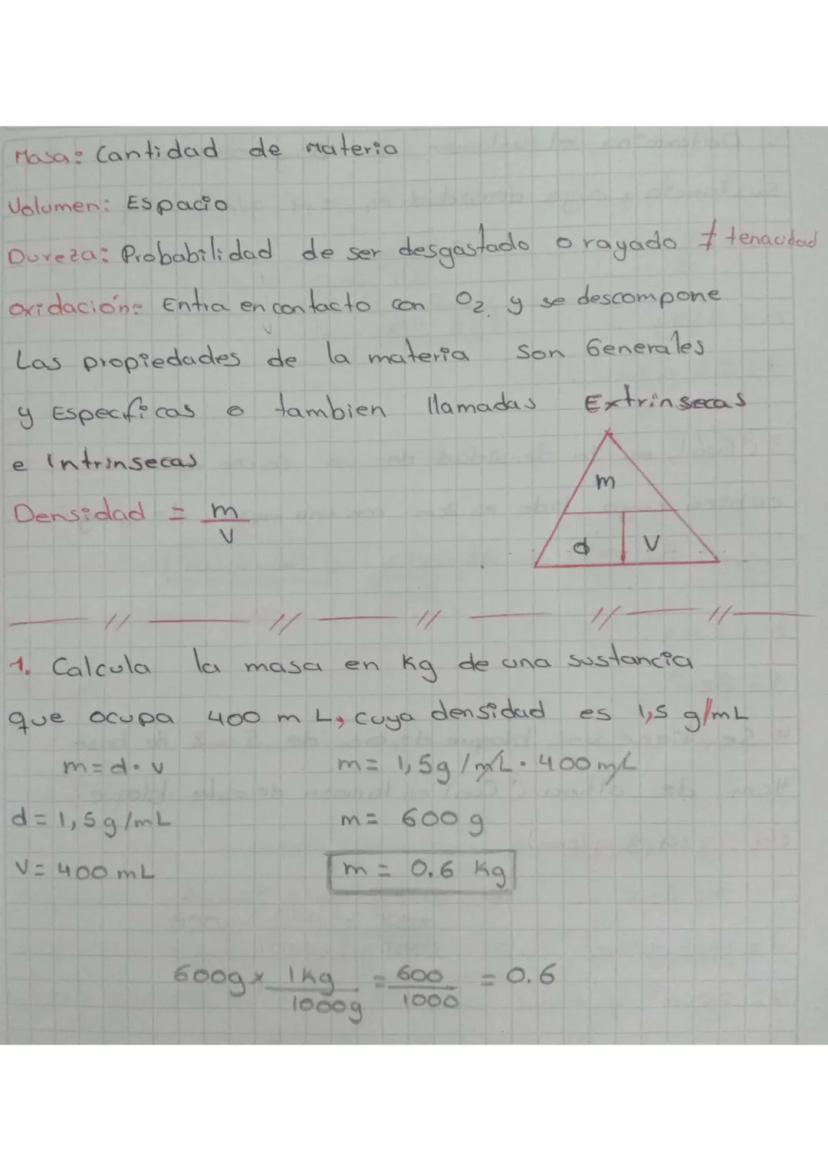 Masa: Cantidad de materia
Volumen: Espacio
Dureza: Probabilidad de ser desgastado o rayado ≠ tenacidad
Oxidación: Entra en contacto con O2, y se descompone
Las propiedades de la materia son Generales
y Especficas o tambien llamadas Extrinsecas
e Intrinsecas
Densidad = m/v
m
d v
1. Calcula la masa en Kg de una sustancia
que ocupa 400 mL, cuya densidad es 1,5 g/mL
m = d · v m = 1,5g/mL · 400mL
d = 1,5g/mL m = 600 g
v = 400 mL m = 0.6 Kg
600g x 1Kg/1000g = 600/1000 = 0.6